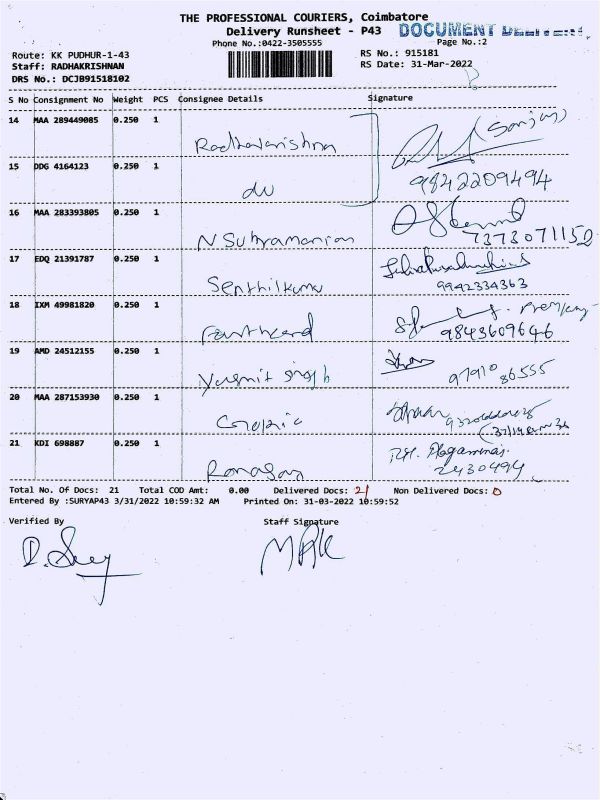 THE PROFESSIONAL COURIERS, Coimbatore
Delivery Runsheet - P43
DOCUMENT
Phone No.:0422-3505555
Page No.:2
Route: KK PUDHUR-1-43
RS No.: 915181
Staff: RADHAKRISHNAN
RS Date: 31-Mar-2022
DRS No.: DCJB91518102
S No Consignment No Weight PCS Consignee Details Signature
14 MAA 289449085 0.250 1
Radhakrishna (Sanjay)
15 DDG 4164123 0.250 1
do 9842209494
16 MAA 283393805 0.250 1
N Subramanian 7373071152
17 EDQ 21391787 0.250 1
Senthilkumar 9942334363
18 IXM 49981820 0.250 1
9843609646
19 AMD 24512155 0.250 1
singh 9791086555
20 MAA 287153930 0.250 1
21 KDI 698887 0.250 1
2430494
Total No. Of Docs: 21 Total COD Amt: 0.00 Delivered Docs: 21 Non Delivered Docs: 0
Entered By :SURYAP43 3/31/2022 10:59:32 AM Printed On: 31-03-2022 10:59:52
Verified By Staff Signature